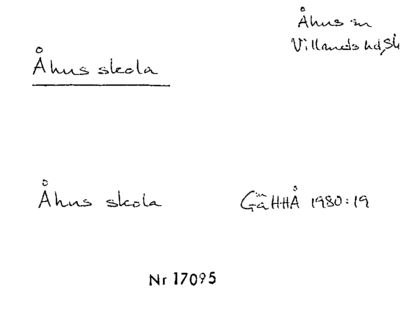 Åhus sn
Villands hd, Sk
Åhus skola
Åhus skola GäHHÅ 1980:19
Nr 17095